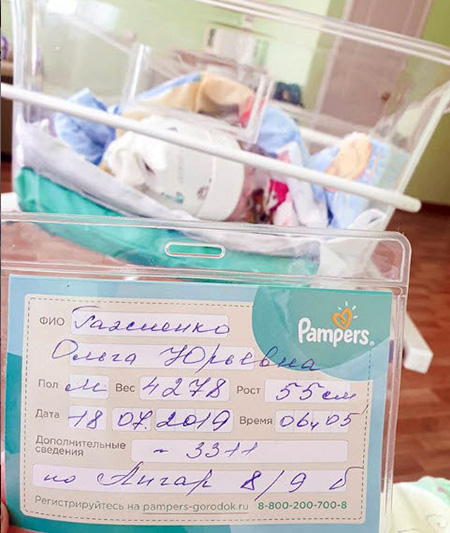 ФИО Гажиенко
Pampers
Ольга Юрьевна
Пол м Вес 4278 Рост 55 см
Дата 18 07.2019 Время 06ч 05'
Дополнительные
сведения - 3311
по Ангар 8/9 б
Регистрируйтесь на pampers-gorodok.ru 8-800-200-700-8